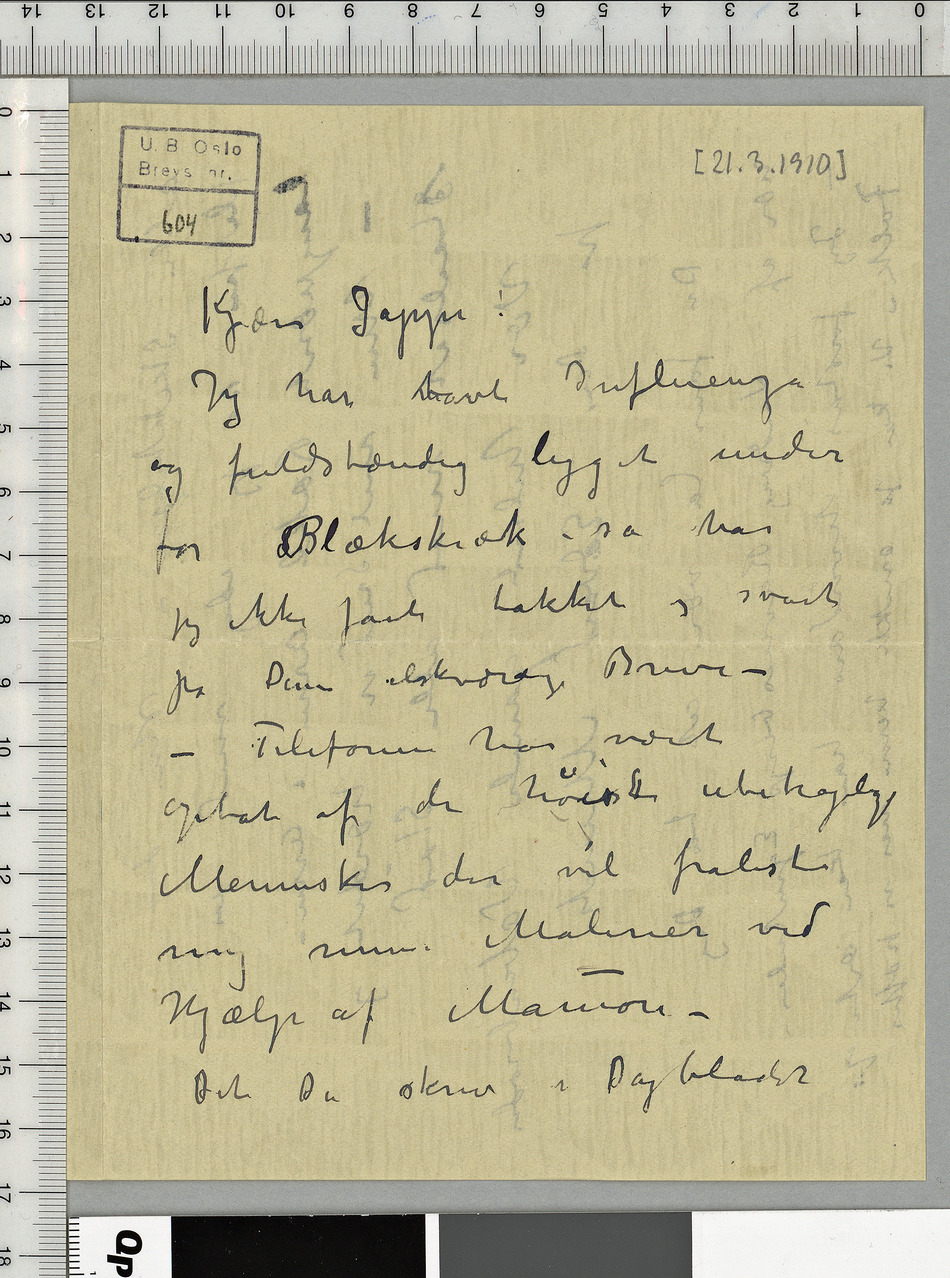 U. B. Oslo
Brevs. nr.
604
[21.3.1910]
Kjære Jappe!
Jeg har havt Influenza
og fuldstændig ligget under
for Blækskræk – så har
jeg ikke fåt takket og svart
på Dine elskværdige Breve –
– Telefonen har vært
optat af de höist ubehagelige
Mennesker der vil fraliste
mig mine Malerier ved
Hjælp af Mamon –
Det Du skrev i Dagbladet